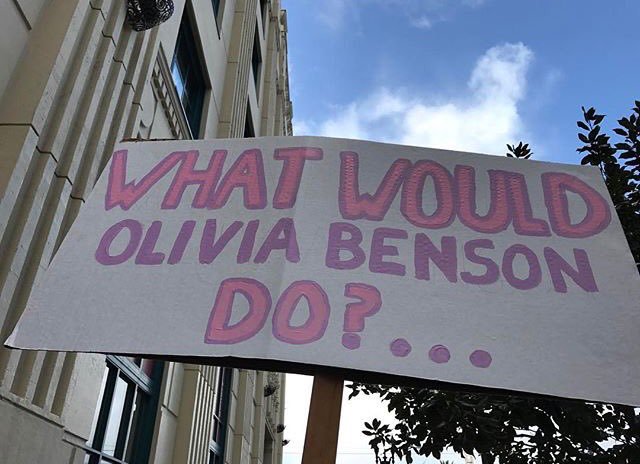 WHAT WOULD
OLIVIA BENSON
DO?...